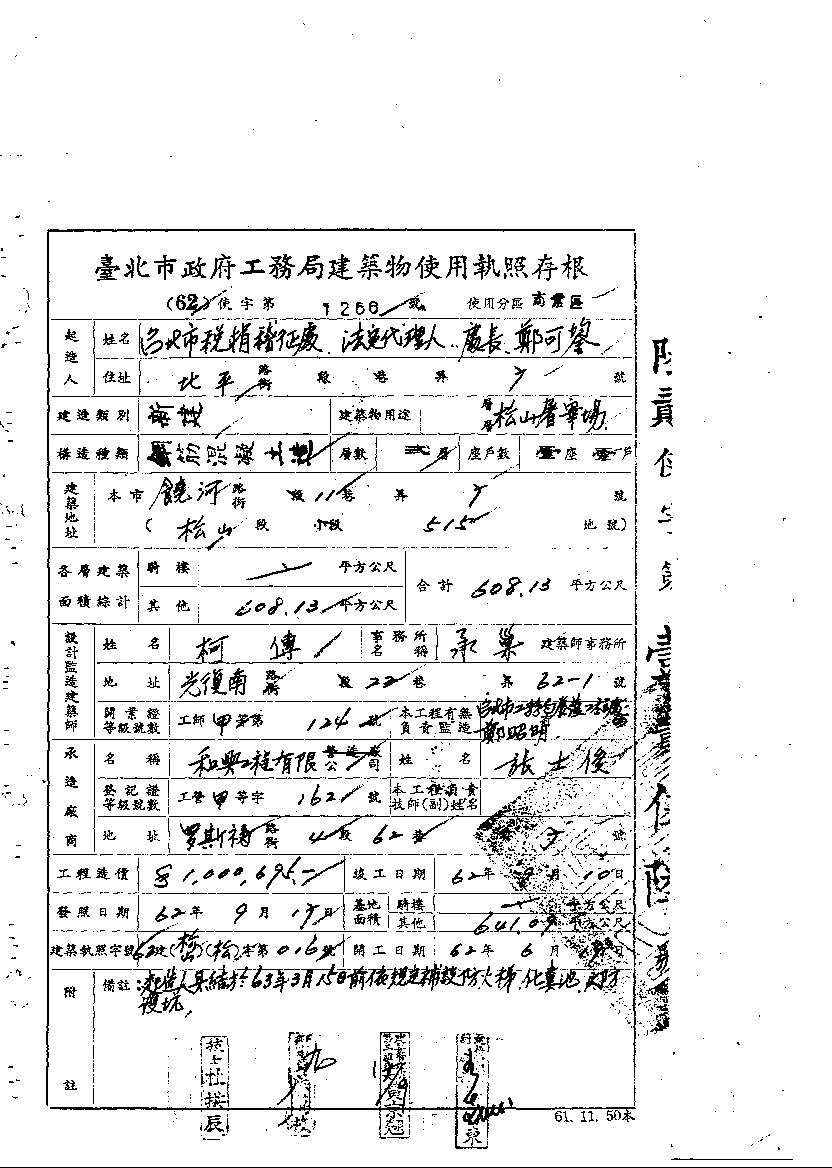 臺北市政府工務局建築物使用執照存根
(62)使字第 1266 號 使用分區 商業區
起造人 姓名 台北市稅捐稽征處 法定代理人 處長 鄭可鋆
住址 北平 路街 段 巷 弄 7 號
建造類別 新建 建築物用途 層層 松山屠宰場
構造種類 鋼筋混凝土造 層數 貳層 座戶數 壹座 壹戶
建築地址 本市 饒河 路街 段 11 巷 弄 7 號
( 松山 段 小段 515 地號)
各層建築面積綜計 騎樓 平方公尺 合計 608.13 平方公尺
其他 608.13 平方公尺
設計監造建築師 姓名 柯傅 事務所名稱 承巢 建築師事務所
地址 光復南 路街 段 22 巷 弄 62-1 號
開業證等級號數 工師 甲 等第 124 號 本工程有無負責監造 鄭昭明
承造廠商 名稱 和興工程有限 營造廠公司 姓名 張士俊
登記證等級號數 工營 甲 等字 1621 號 本工程負責技師(副)姓名
地址 罗斯福 路街 4 段 62 巷 弄 7 號
工程造價 $1,000,695.- 竣工日期 62年 9月 10日
發照日期 62年 9月 17日 基地面積 騎樓 平方公尺
其他 641.09 平方公尺
建築執照字號 62建(松山)(松)字第016號 開工日期 62年 6月 日
附註 備註 起造人具結於63年3月15日前依規定補設防火梯、化糞池、
技士杜拱辰
61. 11. 50本